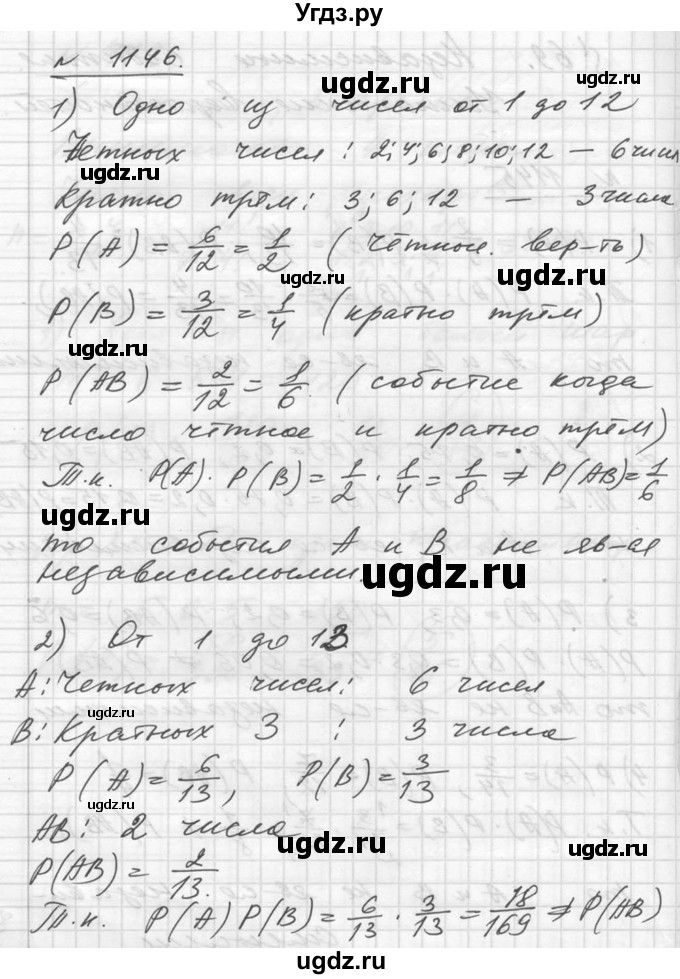 Угдз.ру
№ 1146.
ugdz.ru
1) Одно из чисел от 1 до 12
ugdz.ru
Четных чисел: 2;4;6;8;10;12 — 6 чисел
Кратно трём: 3; 6; 12 — 3 числа
P(A) = 6/12 = 1/2 (чётное. вер-ть)
ugdz.ru
P(B) = 3/12 = 1/4 (кратно трём)
ugdz.ru
P(AB) = 2/12 = 1/6. (событие когда
ugdz.ru
число чётное и кратно трём)
Т.к. P(A) · P(B) = 1/2 · 1/4 = 1/8 ≠ P(AB) = 1/6
ugdz.ru
то события A и B не яв-ся
независимыми.
ugdz.ru
2) От 1 до 13
A: Четных чисел: 6 чисел
ugdz.ru
B: Кратных 3 : 3 числа
P(A) = 6/13, P(B) = 3/13
ugdz.ru
AB: 2 числа
ugdz.ru
P(AB) = 2/13.
Т.к. P(A) P(B) = 6/13 · 3/13 = 18/169 ≠ P(AB)
ugdz.ru